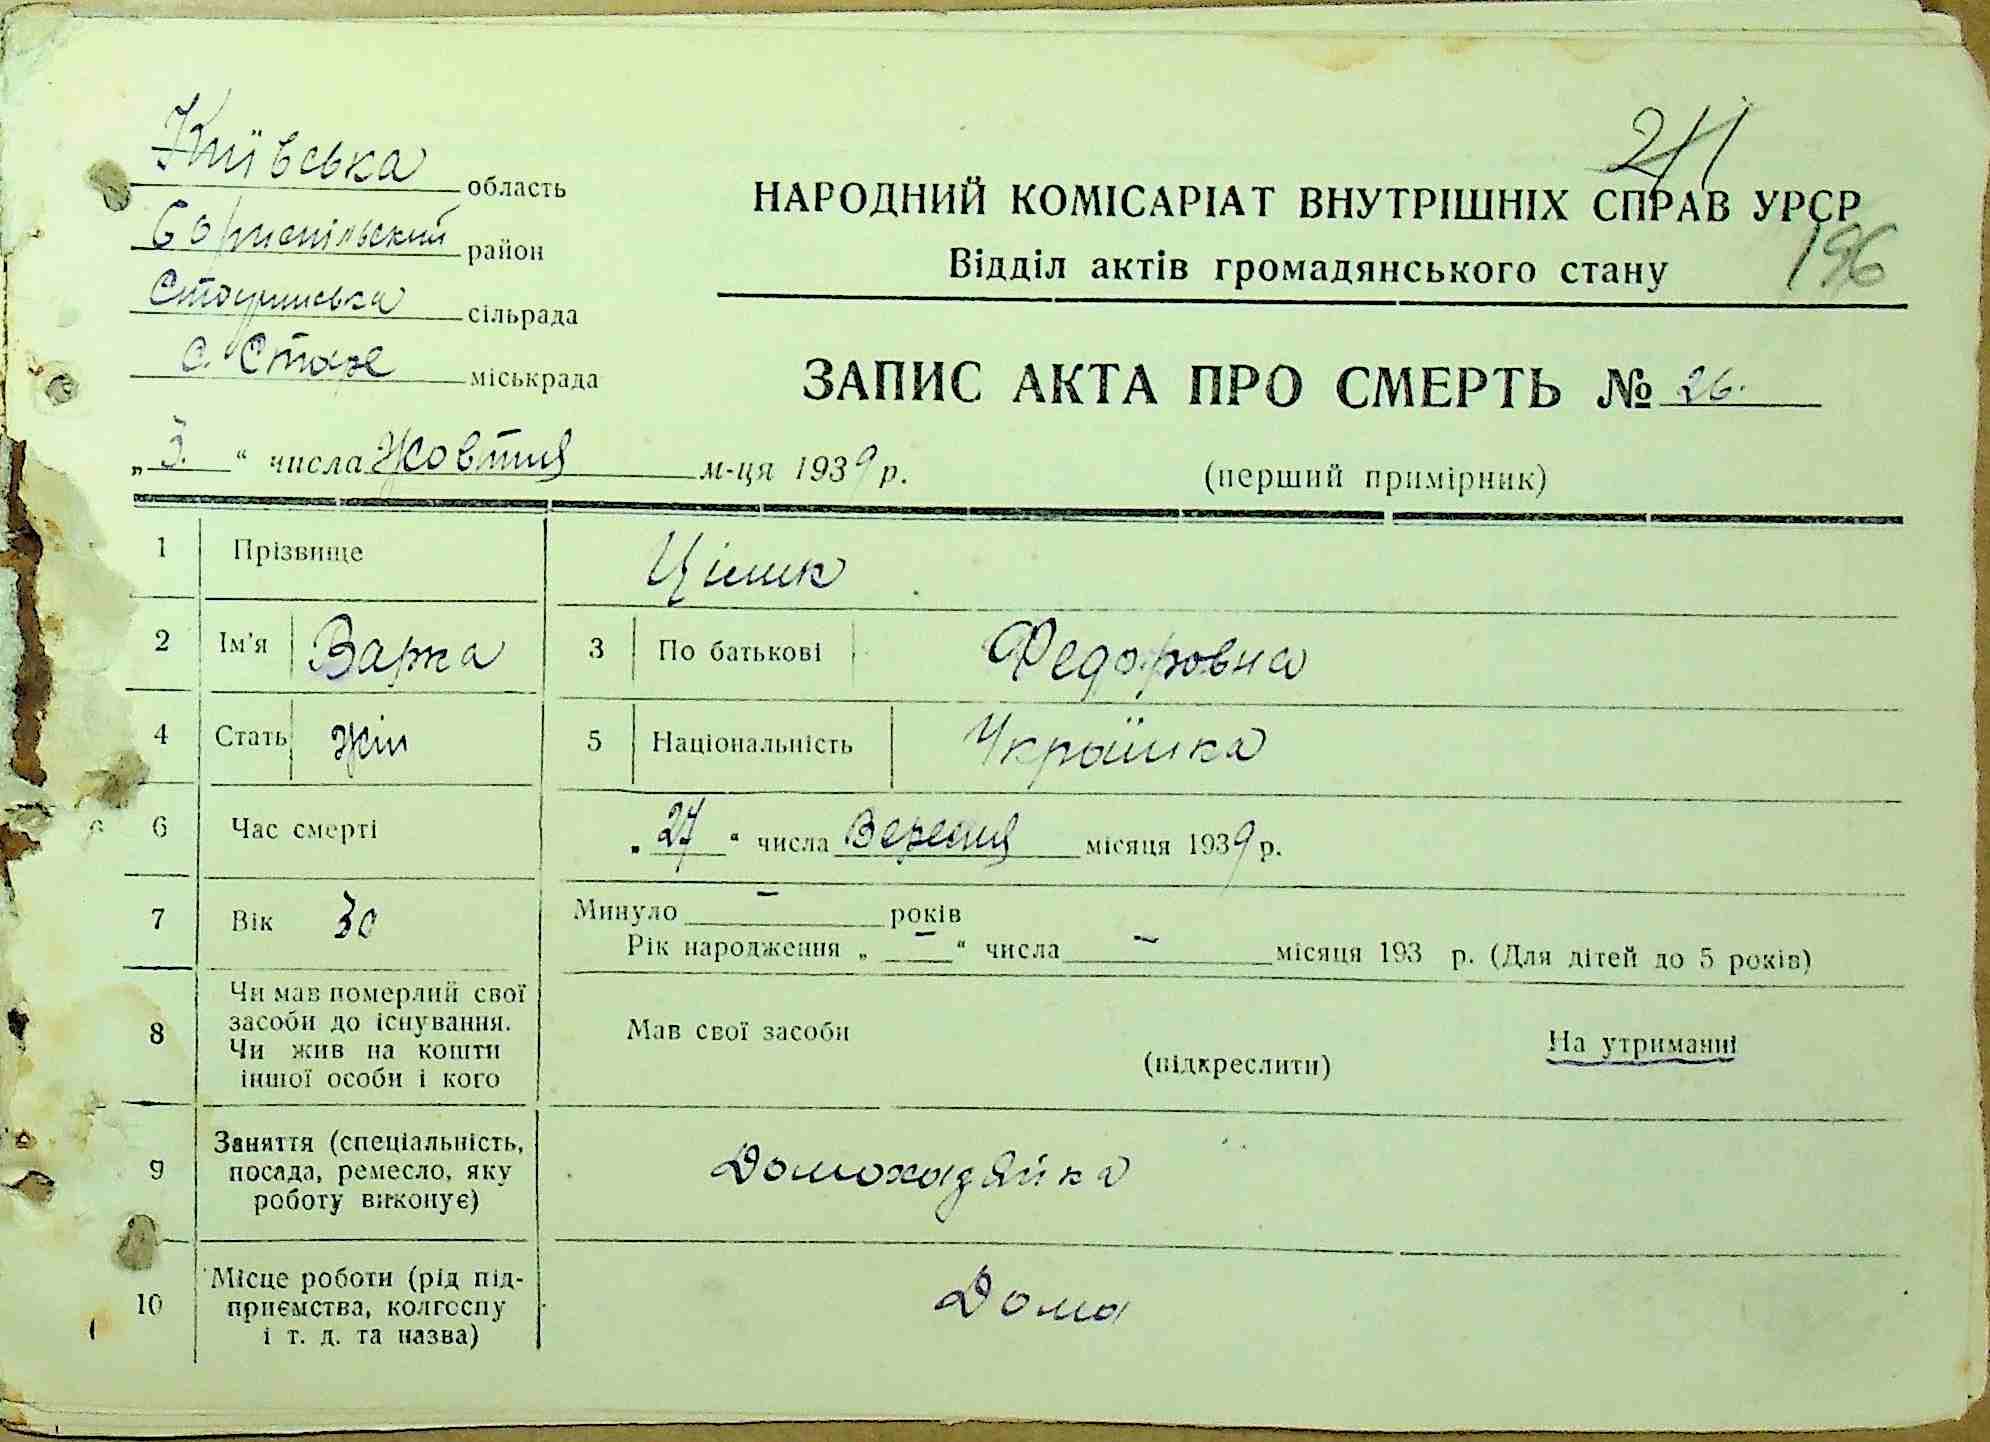 Київська область
Бориспільський район
сільрада
с. Старе міськрада
211
НАРОДНИЙ КОМІСАРІАТ ВНУТРІШНІХ СПРАВ УРСР
196
Відділ актів громадянського стану
ЗАПИС АКТА ПРО СМЕРТЬ № 26.
„ 3. “ числа Жовтня м-ця 1939 р.
(перший примірник)
1 Прізвище
2 Ім'я Варка 3 По батькові Федоровна
4 Стать жін 5 Національність Українка
6 Час смерті „ 27 “ числа Вересня місяця 1939 р.
7 Вік 30 Минуло – років
Рік народження „ – “ числа – місяця 193 р. (Для дітей до 5 років)
8 Чи мав померлий свої
засоби до існування.
Чи жив на кошти
іншої особи і кого
Мав свої засоби
(підкреслити)
На утриманні
9 Заняття (спеціальність,
посада, ремесло, яку
роботу виконує)
Домохазяйка
10 Місце роботи (рід під-
приємства, колгоспу
і т. д. та назва)
Дома